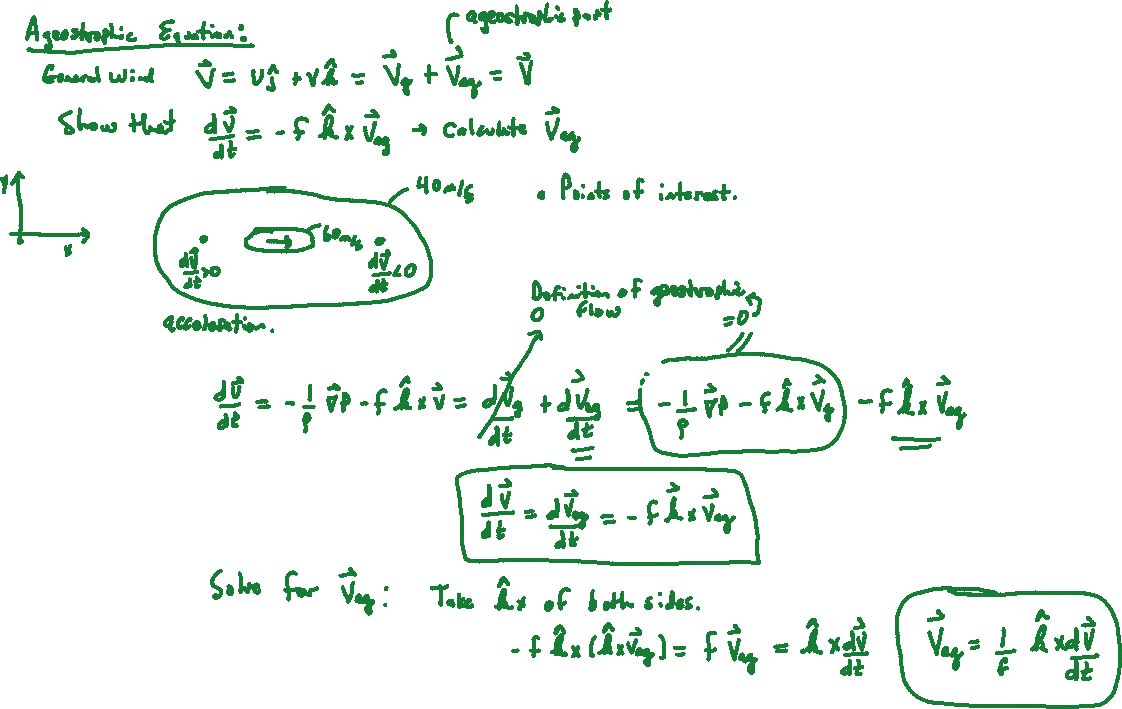 ageostrophic part
Ageostrophic Equation:
General wind V⃗ = uĵ + vk̂ = V⃗g + V⃗ag = V⃗
Show that dV⃗/dt = -f k̂ x V⃗ag → Calculate V⃗ag
y
x
40m/s
• Points of interest.
60m/s
dV⃗/dt >0
dV⃗/dt <0
acceleration.
Definition of geostrophic
flow
0
=0
dV⃗/dt = - 1/ρ ∇⃗p - f k̂ x V⃗ = dV⃗g/dt + dV⃗ag/dt = (- 1/ρ ∇⃗p - f k̂ x V⃗g) - f k̂ x V⃗ag
dV⃗/dt = dV⃗ag/dt = - f k̂ x V⃗ag
Solve for V⃗ag: Take k̂ x of both sides.
- f k̂ x (k̂ x V⃗ag) = f V⃗ag = k̂ x dV⃗/dt
V⃗ag = 1/f k̂ x dV⃗/dt